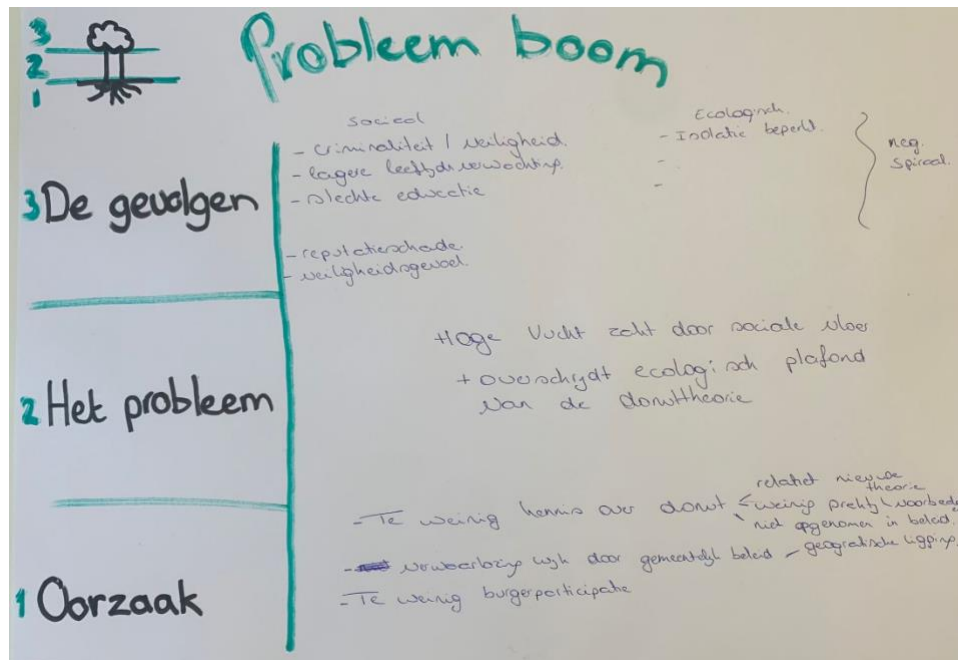 3
2
1
Probleem boom
3 De gevolgen
sociaal
- criminaliteit / veiligheid.
- lagere leeftijdsverwachting.
- slechte educatie
- reputatieschade.
- veiligheidsgevoel.
Ecologisch.
- Isolatie beperkt.
-
-
neg.
spiraal.
2 Het probleem
Hoge Vucht zakt door sociale vloer
+ overschrijdt ecologisch plafond
van de donuttheorie
1 Oorzaak
- Te weinig kennis over donut
relatief nieuwe
theorie
weinig praktijkvoorbeelde
niet opgenomen in beleid.
- verwaarlozing wijk door gemeentelijk beleid - geografische ligging.
- Te weinig burgerparticipatie